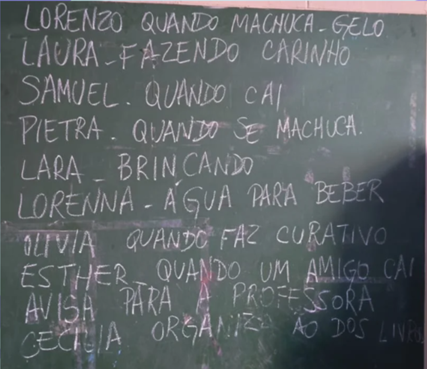 LORENZO QUANDO MACHUCA - GELO
LAURA - FAZENDO CARINHO
SAMUEL. QUANDO CAI
PIETRA - QUANDO SE MACHUCA.
LARA - BRINCANDO
LORENNA - ÁGUA PARA BEBER
OLIVIA QUANDO FAZ CURATIVO
ESTHER QUANDO UM AMIGO CAI
AVISA PARA A PROFESSORA
CECILIA ORGANIZAÇÃO DOS LIVROS